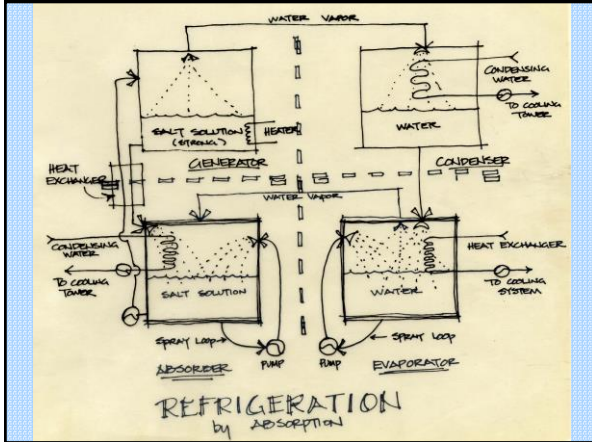 WATER VAPOR
CONDENSING
WATER
TO COOLING
TOWER
SALT SOLUTION
(STRONG)
HEATER
WATER
GENERATOR
CONDENSER
HEAT
EXCHANGER
WATER VAPOR
CONDENSING
WATER
HEAT EXCHANGER
TO COOLING
TOWER
SALT SOLUTION
WATER
TO COOLING
SYSTEM
SPRAY LOOP
SPRAY LOOP
ABSORBER
PUMP
PUMP
EVAPORATOR
REFRIGERATION
by ABSORPTION